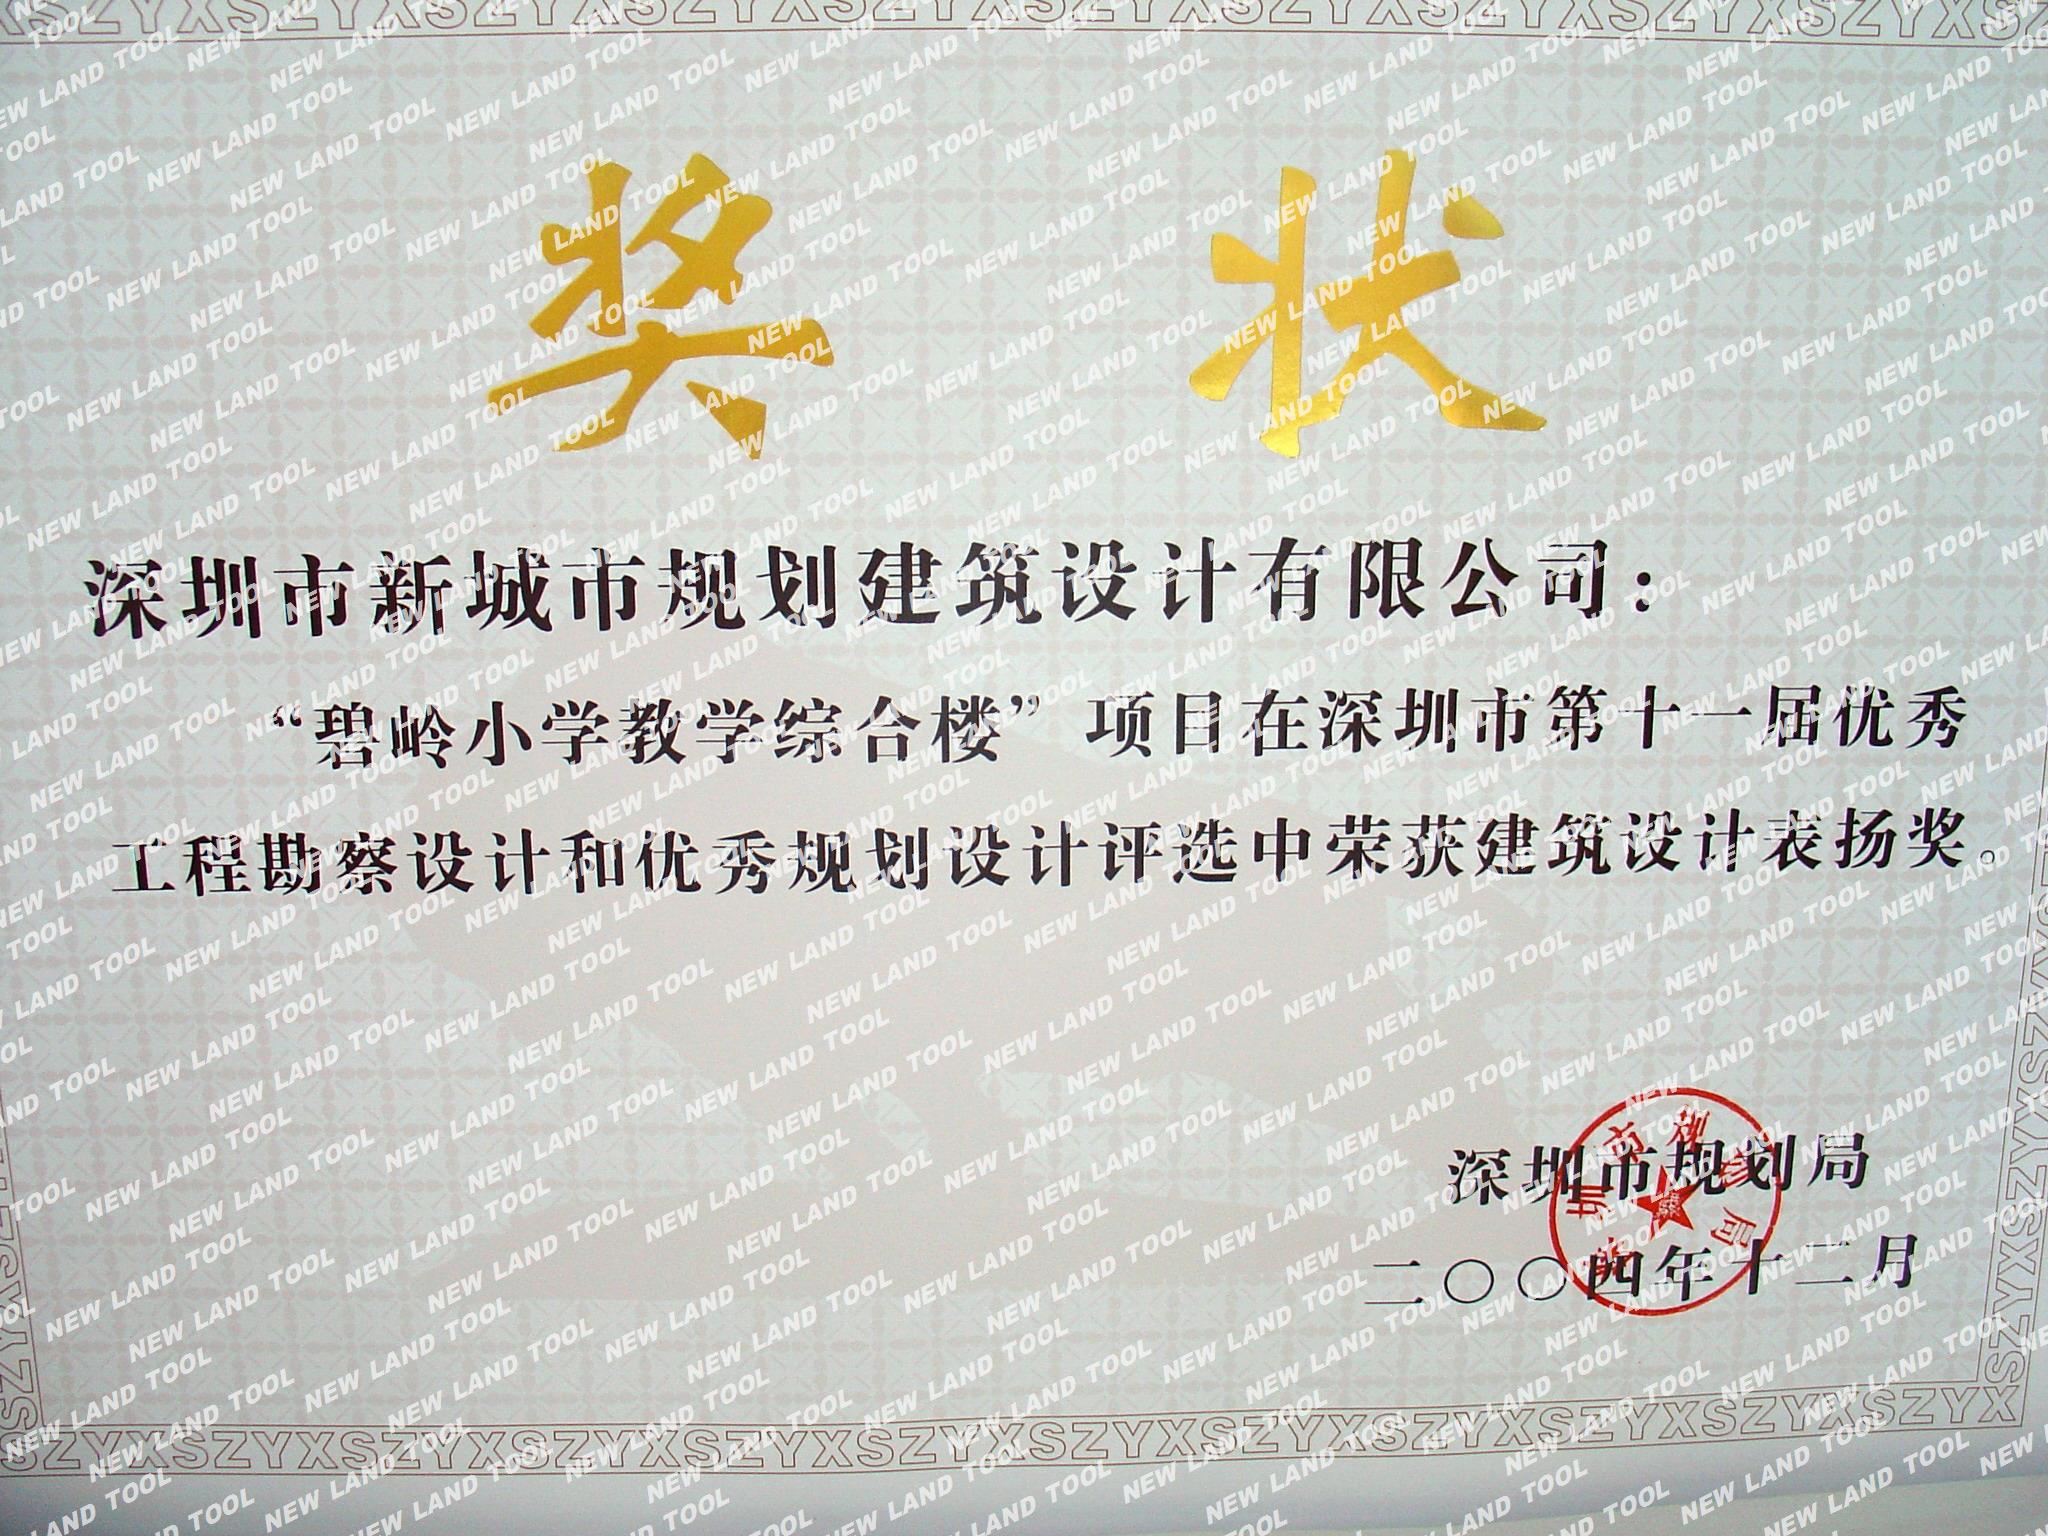 奖 状
深圳市新城市规划建筑设计有限公司：
“碧岭小学教学综合楼”项目在深圳市第十一届优秀
工程勘察设计和优秀规划设计评选中荣获建筑设计表扬奖。
深圳市规划局
二〇〇四年十二月
深圳市规划局
NEW LAND TOOL
SZYXSZYXSZYXSZYXSZYXSZYX